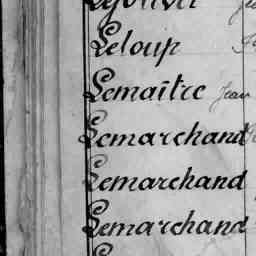 Leloup
Lemaître Jean
Lemarchand
Lemarchand
Lemarchand